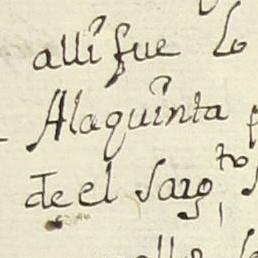 alli fue lo
Alaquinta p
de el Sarg.to S